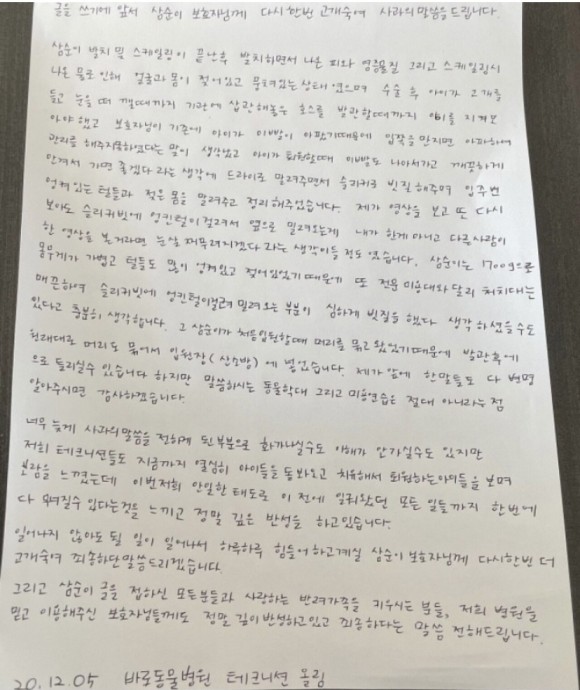 글을 쓰기에 앞서 상순이 보호자님께 다시한번 고개숙여 사과의 말씀을 드립니다.
상순이 발치 및 스케일링이 끝난후 발치하면서 나온 피와 염증물질 그리고 스케일링시
나온 물로 인해 얼굴과 몸이 젖어있고 뭉쳐있는 상태였으며 수술 후 아이가 고개를
들고 눈을 떠 깰때까지 기관에 삽관해놓은 호스를 발관할때까지 아이를 지켜보
아야 했고 보호자님이 기존에 아이가 이빨이 아팠기때문에 입쪽을 만지면 아파하여
관리를 해주지못하였다는 말이 생각났고 아이가 퇴원할때 이빨도 나아서가고 깨끗하게
안겨서 가면 좋겠다 라는 생각에 드라이로 말려주면서 슬리커로 빗질해주며 입주변
엉켜있는 털들과 젖은 몸을 말려주고 정리해주었습니다. 제가 영상을 보고 또 다시
보아도 슬리커빗에 엉킨털이걸려서 옆으로 밀려오는게 내가 한게 아니고 다른사람이
한 영상을 본거라면 눈살 찌푸려지겠다 라는 생각이들 정도였습니다. 상순이는 1700g으로
몸무게가 가볍고 털들도 많이 엉켜있고 젖어있었기때문에 또 전문 미용대와 달리 처치대는
매끈하여 슬리커빗에 엉킨털이걸려 밀려오는 부분이 심하게 빗질을 했다 생각하셨을수도
있다고 충분히 생각합니다. 그 상순이가 처음입원할때 머리를 묶고 왔었기때문에 발관후에
원래대로 머리도 묶여서 입원장(산소방)에 넣었습니다. 제가 앞에 한말들도 다 변명
으로 들리실수 있습니다 하지만 말씀하시는 동물학대 그리고 미용연습은 절대 아니라는 점
알아주시면 감사하겠습니다.
너무 늦게 사과의말씀을 전하게 된부분으로 화가나실수도 이해가 안가실수도 있지만
저희 테크니션들도 지금까지 열심히 아이들을 돌봐오고 치유해서 퇴원하는아이들을 보며
보람을 느꼈는데 이번저희 안일한 태도로 이 전에 일궈왔던 모든 일들까지 한번에
다 무너질수 있다는것을 느끼고 정말 깊은 반성을 하고있습니다.
일어나지 않아도 될 일이 일어나서 하루하루 힘들어하고계실 상순이보호자님께 다시한번 더
고개숙여 죄송하단말씀드리겠습니다.
그리고 상순이 글을 접하신 모든분들과 사랑하는 반려가족을 키우시는 분들, 저희 병원을
믿고 이용해주신 보호자님들께도 정말 깊이반성하고있고 죄송하다는 말씀 전해드립니다.
20.12.05 바로동물병원 테크니션 올림